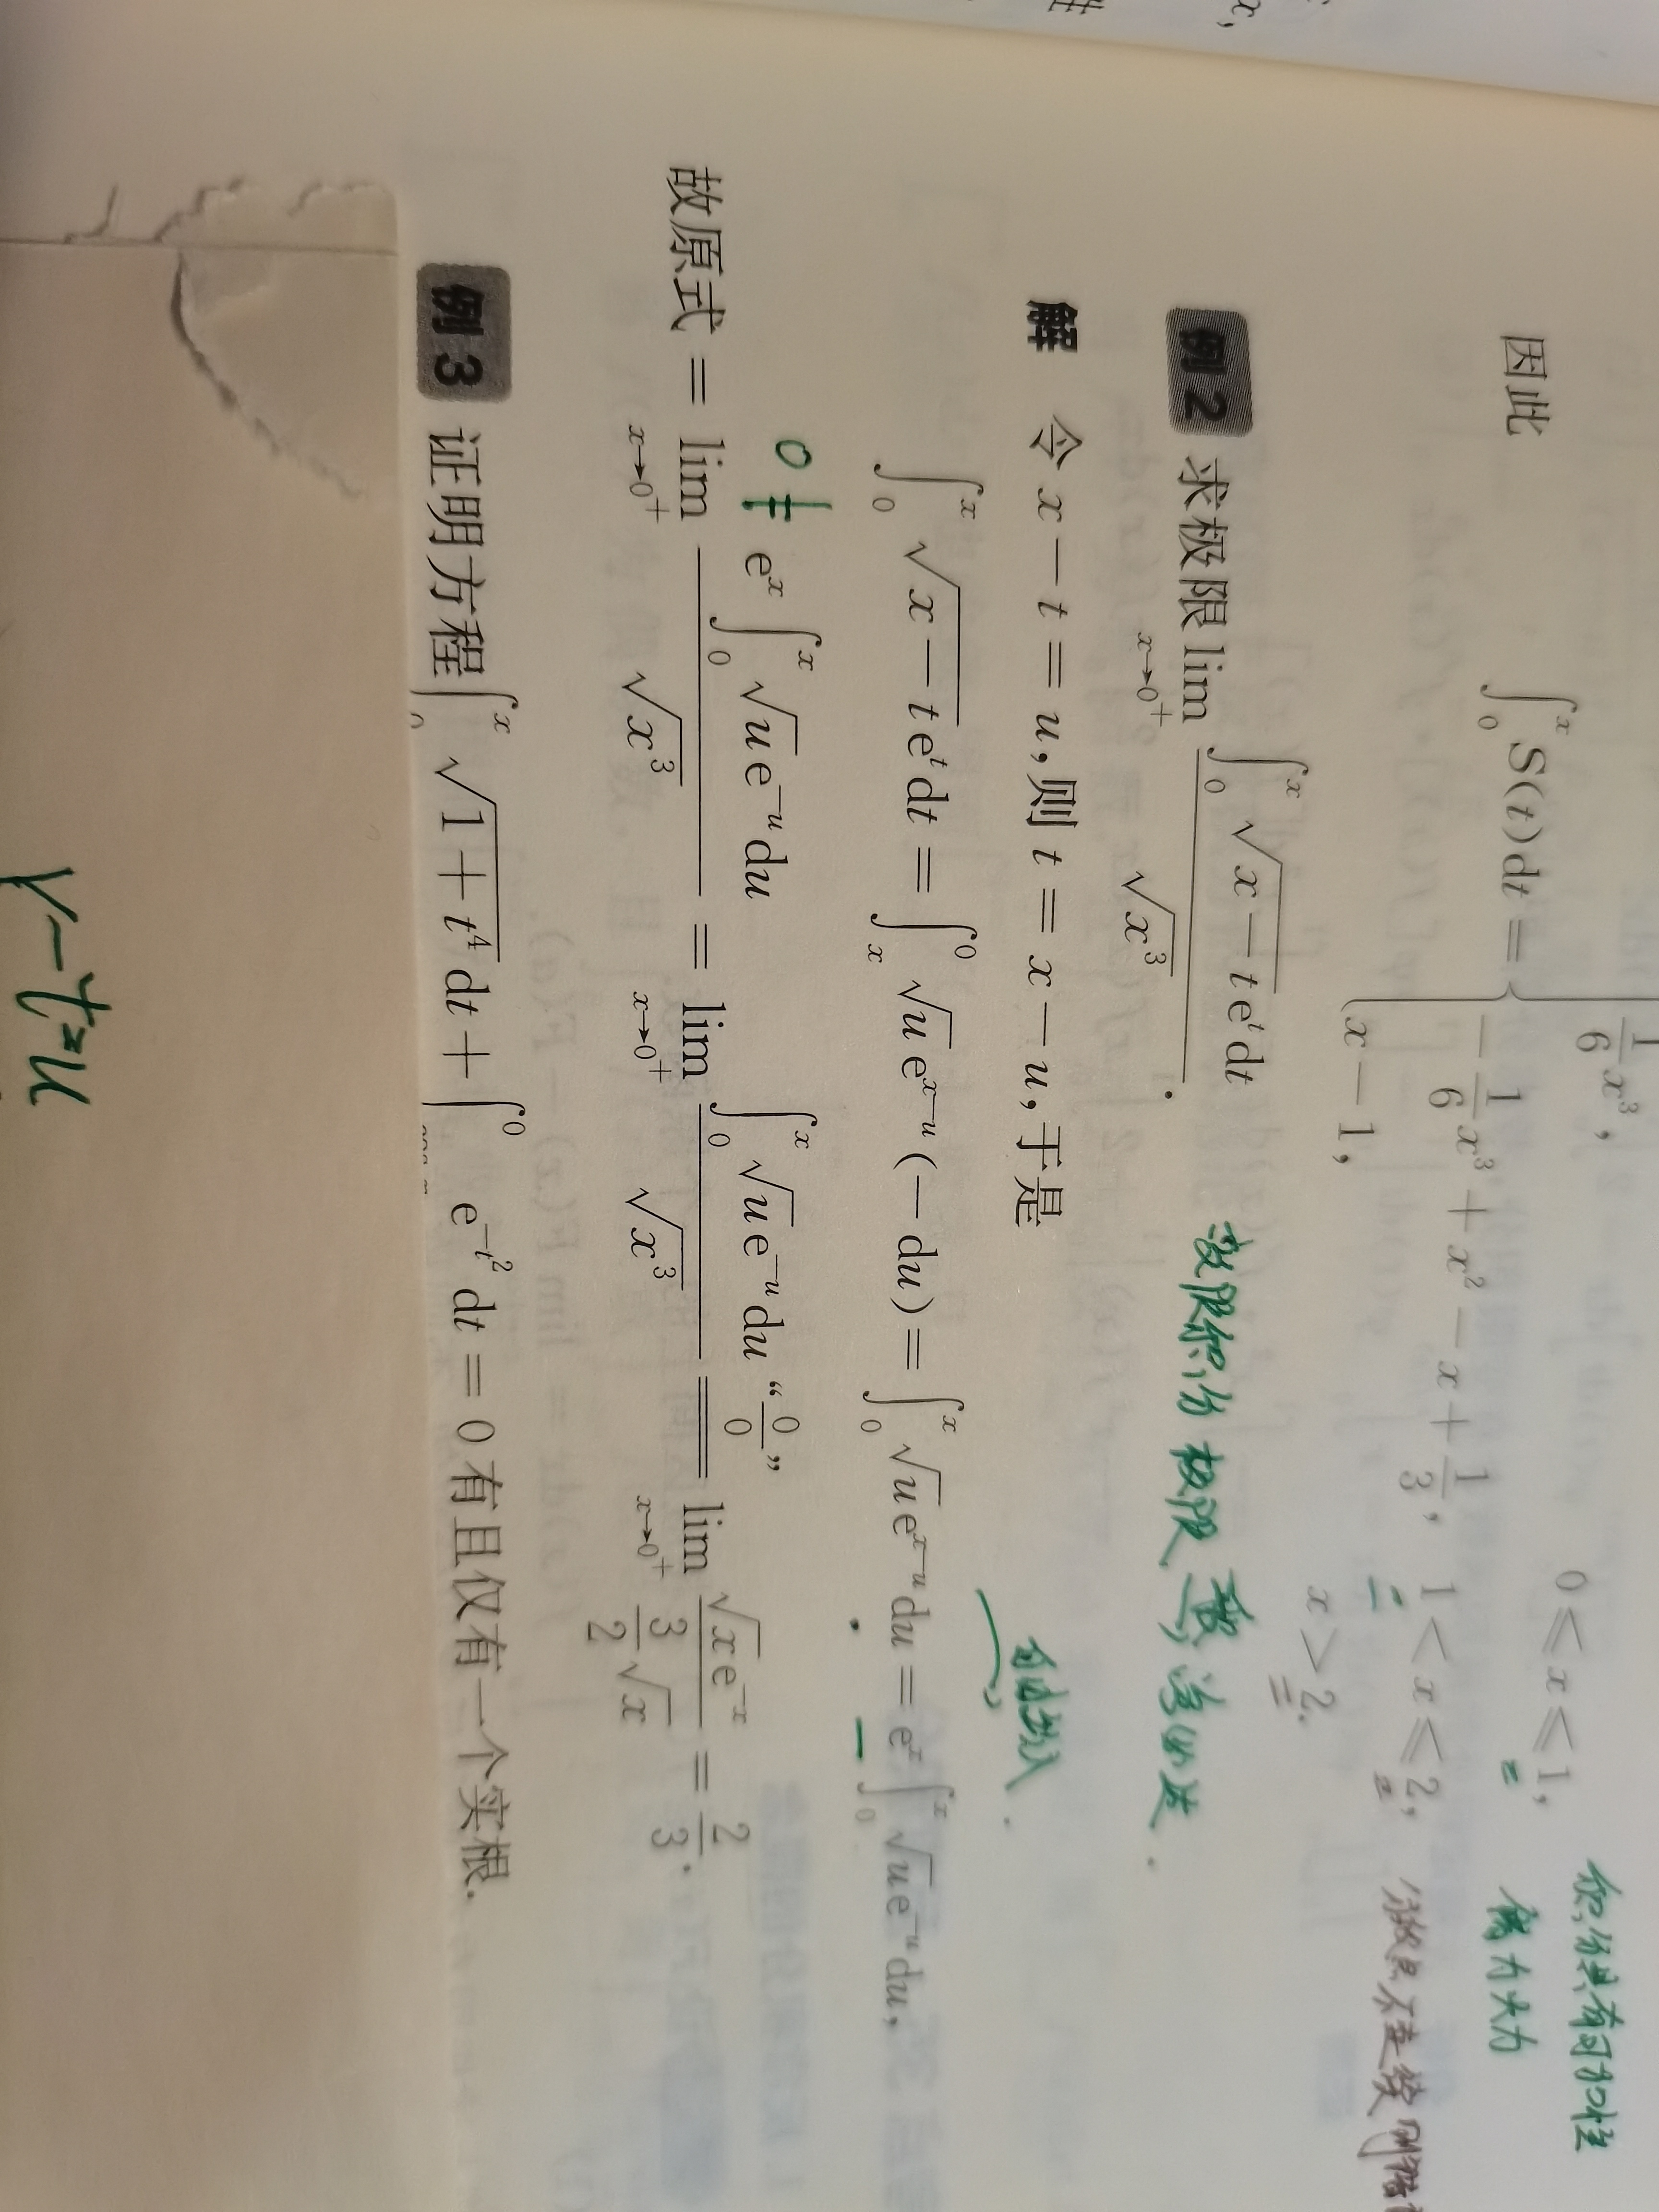 因此 ∫₀ˣ S(t)dt = { 1/6 x³, 0 ≤ x ≤ 1,
−1/6 x³ + x² − x + 1/3, 1 < x ≤ 2,
x − 1, x > 2.
积分具有可加性
例2 求极限 lim_{x→0⁺} ∫₀ˣ √(x−t) eᵗ dt / √(x³).
解 令 x − t = u, 则 t = x − u, 于是
∫₀ˣ √(x−t) eᵗ dt = ∫ₓ⁰ √u e^{x−u} (−du) = ∫₀ˣ √u e^{x−u} du = eˣ ∫₀ˣ √u e^{−u} du,
0 ≠
故原式 = lim_{x→0⁺} eˣ ∫₀ˣ √u e^{−u} du / √(x³) = lim_{x→0⁺} ∫₀ˣ √u e^{−u} du / √(x³) “0/0” = lim_{x→0⁺} √x e^{−x} / (3/2 √x) = 2/3.
例3 证明方程 ∫₀ˣ √(1+t⁴) dt + ∫⁰ e^{−t²} dt = 0 有且仅有一个实根.
x−t=u